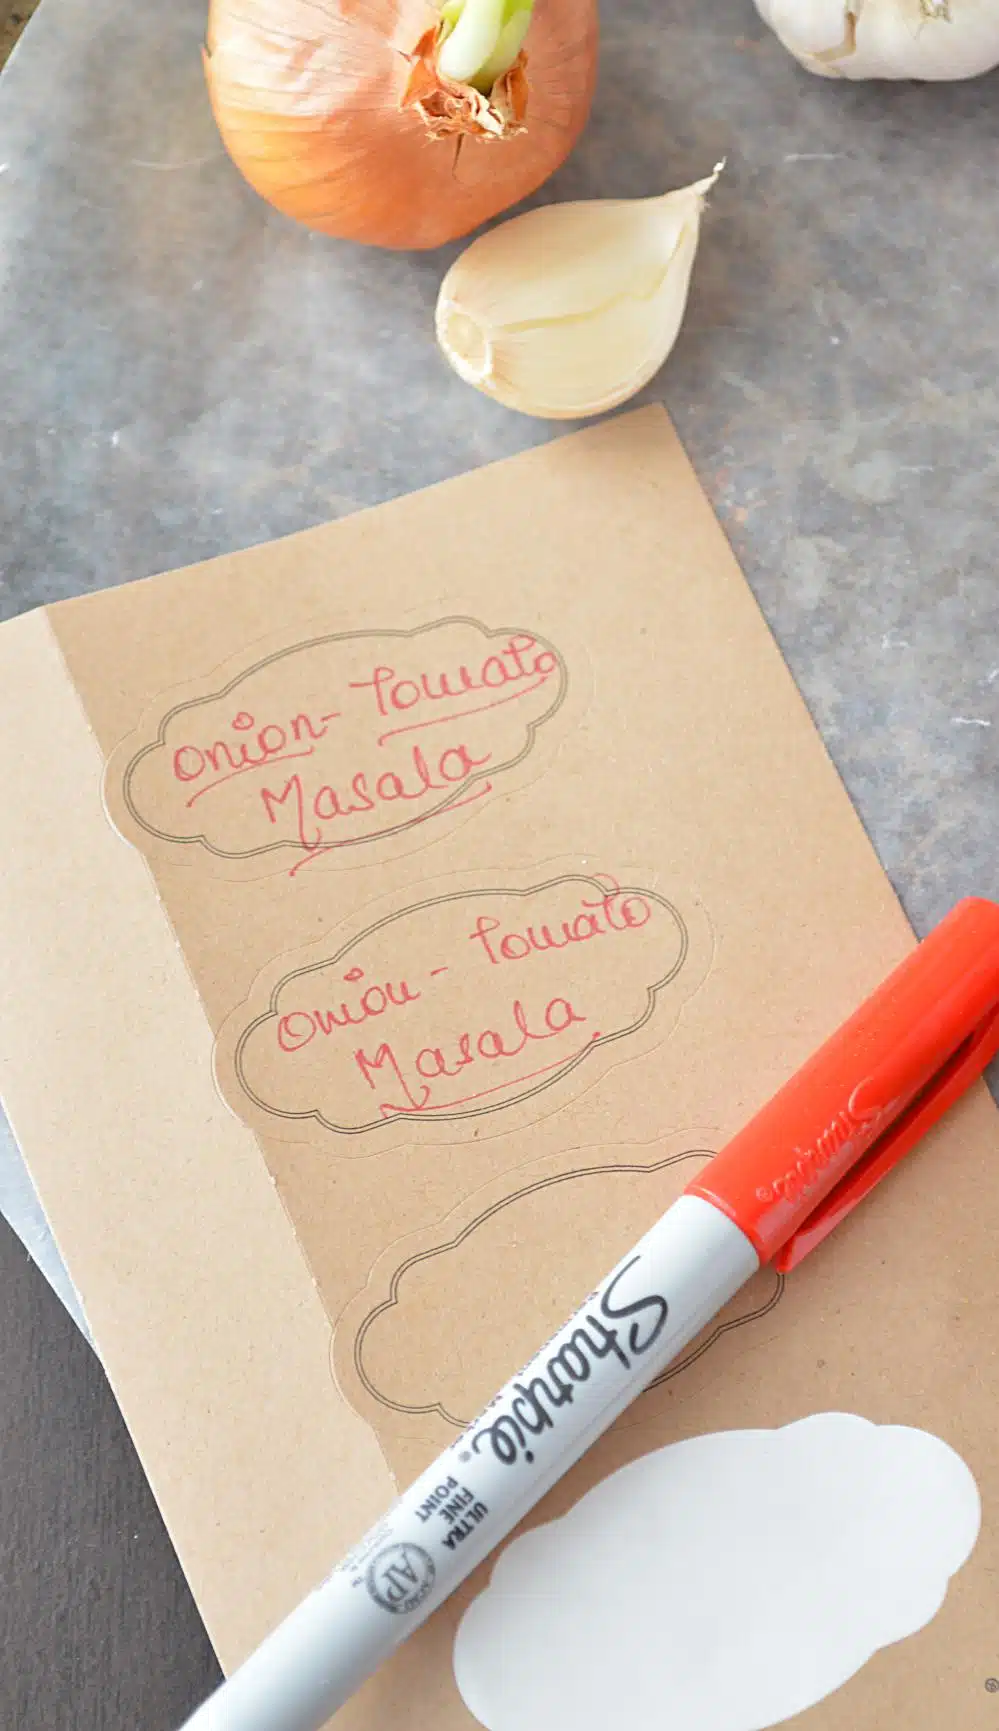 Onion- Tomato
Masala
Onion - Tomato
Masala
Sharpie
Sharpie®
ULTRA
FINE
POINT
AP